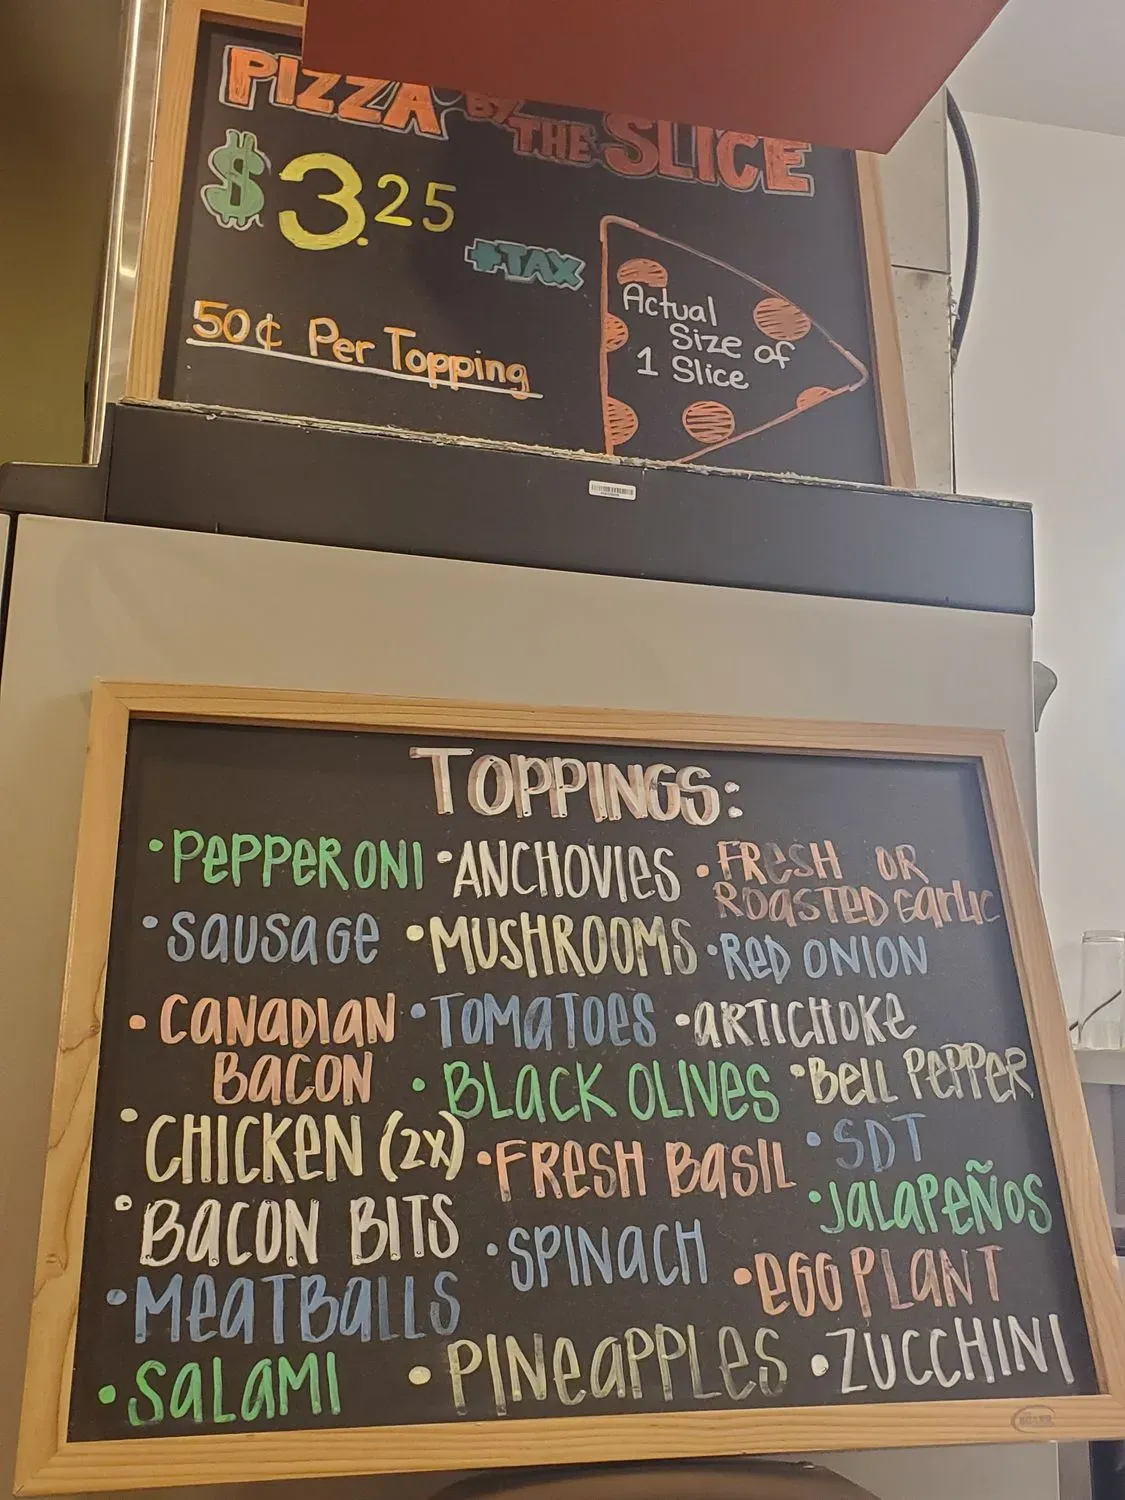 PIZZA BY THE SLICE
$3.25
+TAX
50¢ Per Topping
Actual
Size of
1 Slice
TOPPINGS:
• PEPPERONI
• SAUSAGE
• CANADIAN
BACON
• CHICKEN (2x)
• BACON BITS
• MEATBALLS
• SALAMI
• ANCHOVIES
• MUSHROOMS
• TOMATOES
• BLACK OLIVES
• FRESH BASIL
• SPINACH
• PINEAPPLES
• FRESH OR
ROASTED GARLIC
• RED ONION
• ARTICHOKE
• BELL PEPPER
• SDT
• JALAPEÑOS
• EGGPLANT
• ZUCCHINI